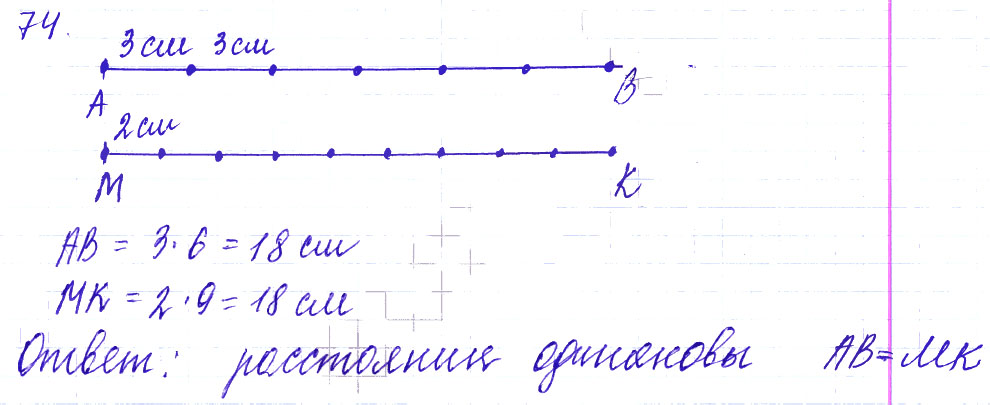 74.
3 см 3 см
A B
2 см
M K
AB = 3·6 = 18 см
MK = 2·9 = 18 см
Ответ: расстояния одинаковы AB = MK